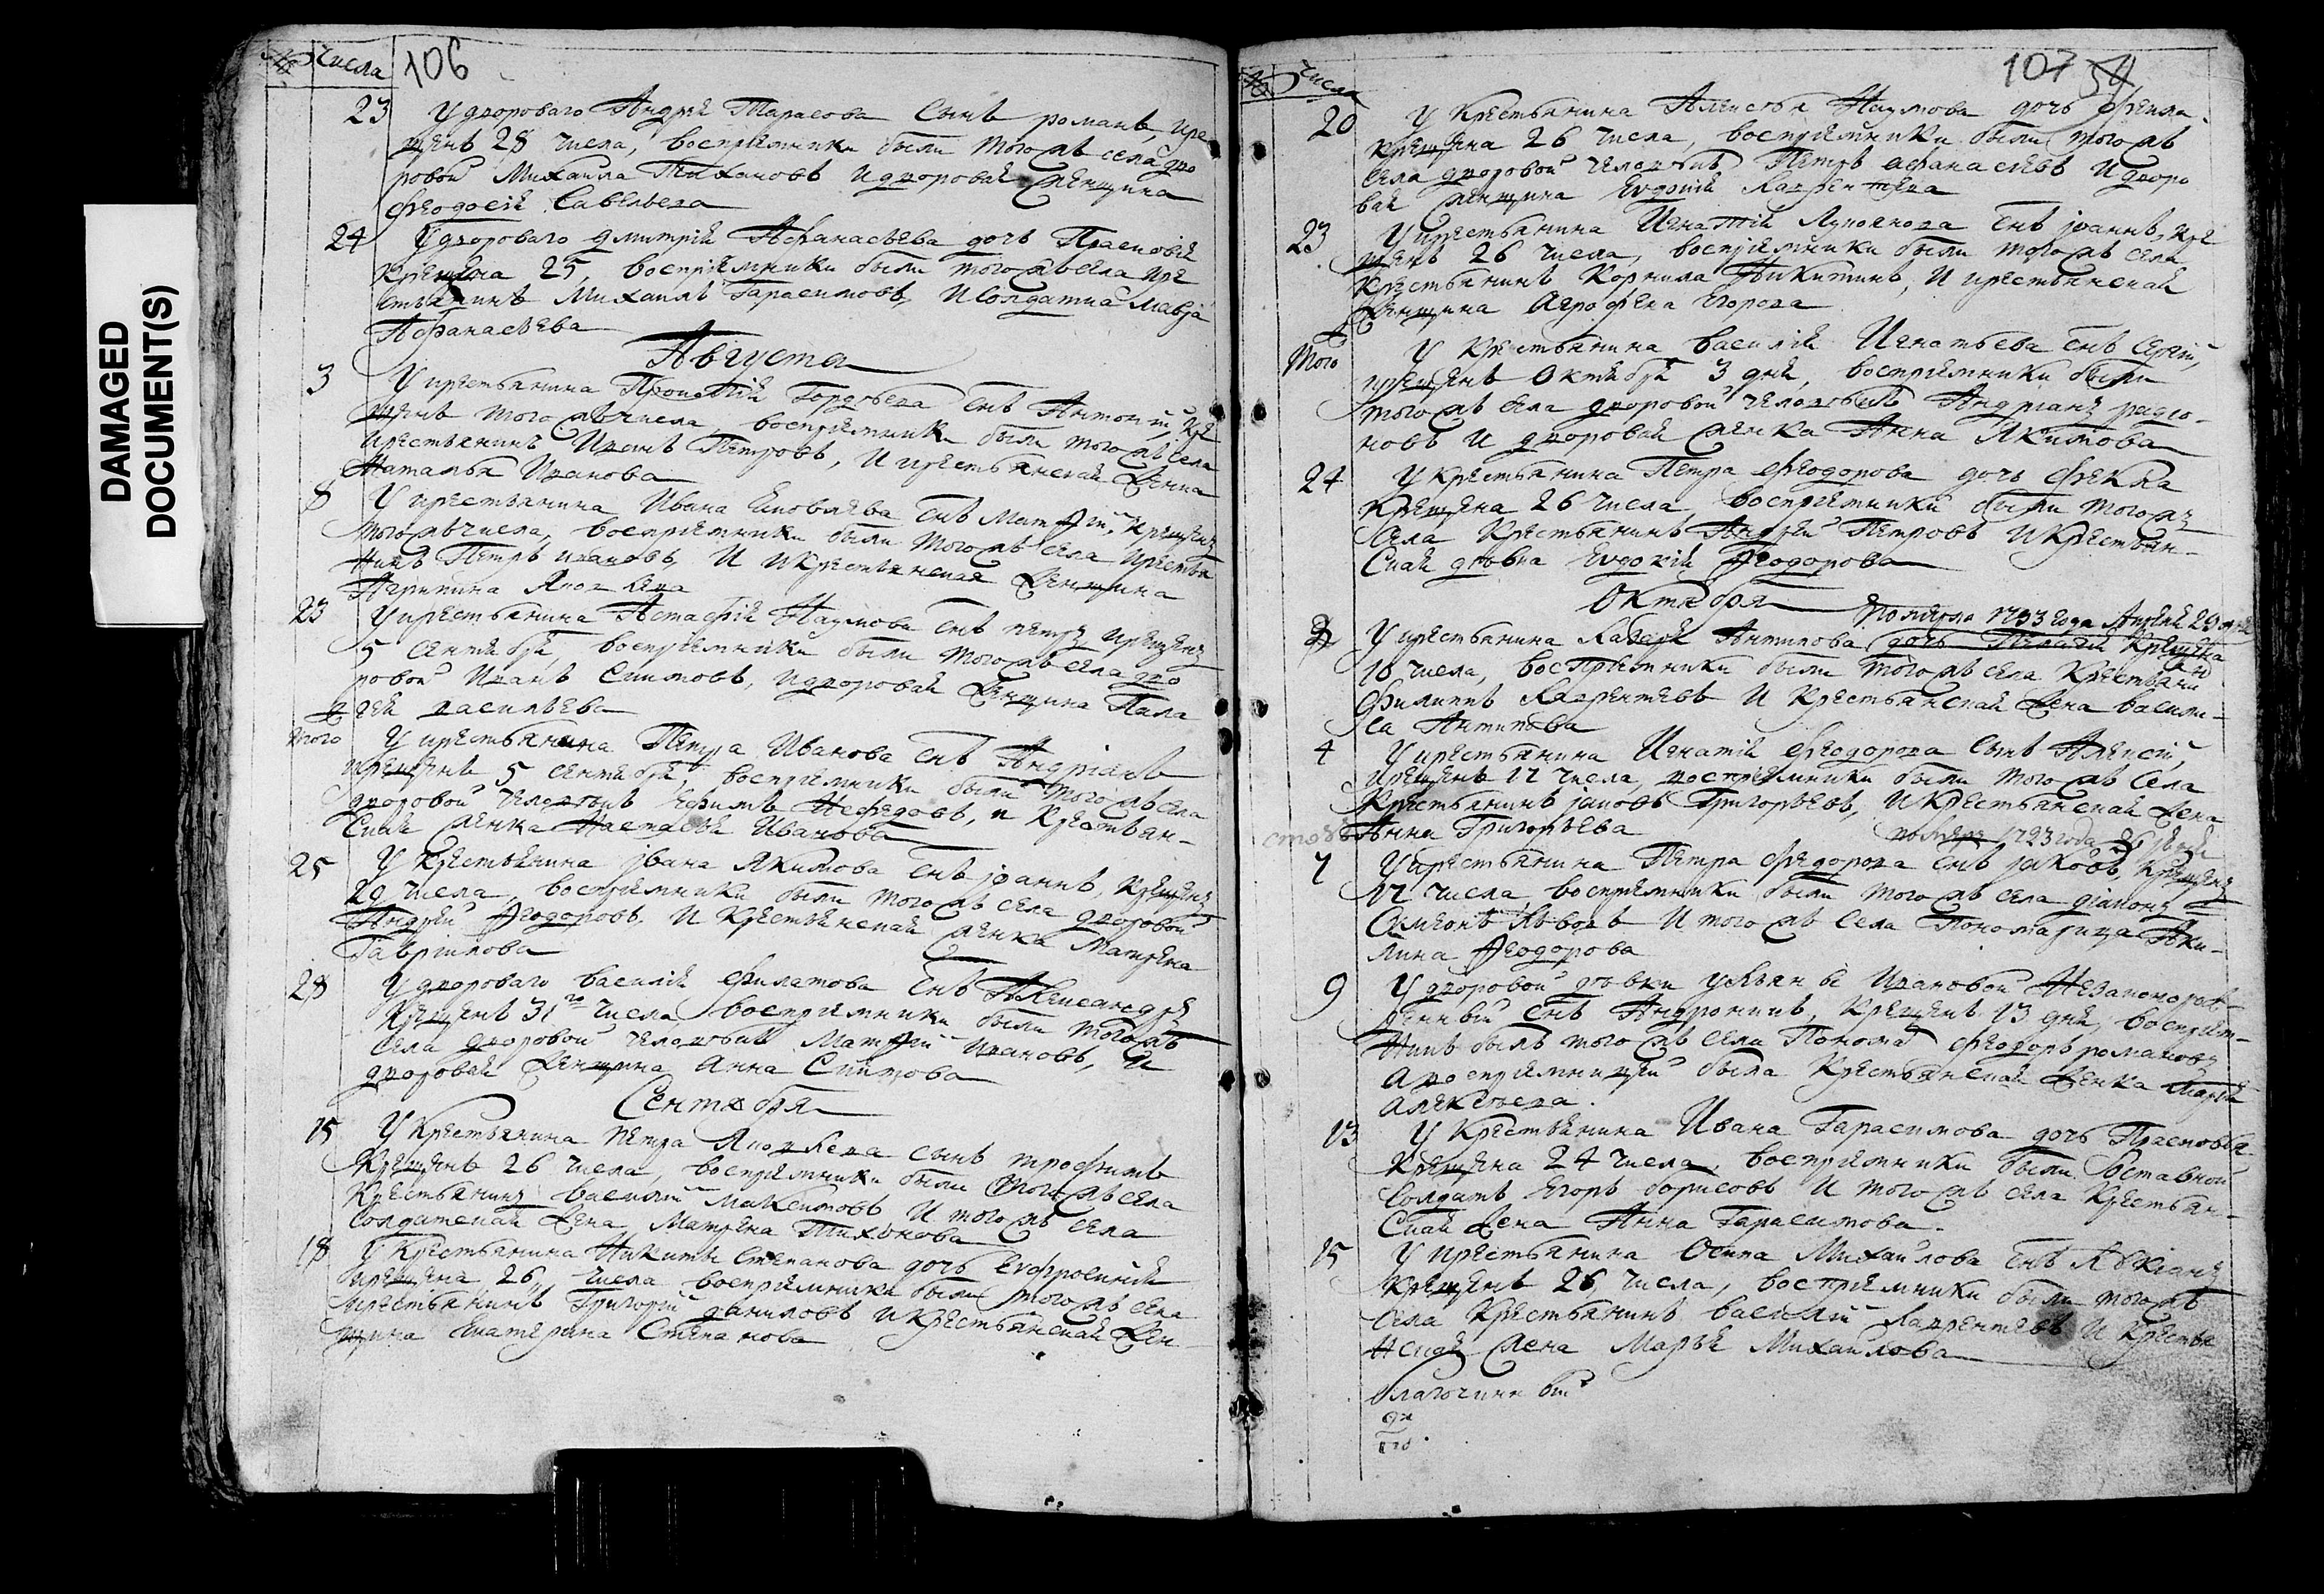 DAMAGED
DOCUMENT(S)
№ Числа 106
23 У двороваго Андрея Тарасова сынъ романъ, кре
щенъ 28 числа, восприемники были тогожъ села дво
ровой Михаила Тихановъ и дворовая женщина
Феодосия Савельева
24 У двороваго Дмитрия Афанасьева дочь Прасковия
крещена 25, восприемники были тогожъ села кре
стьянинъ Михаилъ Гарасимовъ, и солдатка
Афанасьева
Августа
3 У крестьянина Гордеева снъ Антоний, кре
щенъ того жъ числа, восприемники были того жъ села
крестьянинъ Иванъ Петровъ, и крестьянская женка
Наталья Иванова
8 У крестьянина Ивана Яковлева снъ Матфий, крещенъ
того жъ числа, восприемники были того жъ села крестья
нинъ Петръ ивановъ, и крестьянская женщина
Агрипина Яковлева
23 У крестьянина Астафия Наумова снъ петръ крещенъ
5 сентября, восприемники были того жъ села дво
ровой Иванъ Симовъ, и дворовая женщина Пала
гея васильева
того У крестьянина Петра Иванова снъ Андриянъ
крещенъ 5 сентября, восприемники были того жъ села
дворовой человекъ Ефимъ Нефедовъ, и крестьян-
ская женка Настасья Иванова
25 У крестьянина Iвана Якимова снъ Iоаннъ, крещенъ
29 числа, восприемники были того жъ села дворовой
Андрей Феодоровъ, и крестьянская женка Матрена
Гаврилова
28 У двороваго василия Филатова снъ Александръ
крещенъ 31го числа восприемники были того жъ
села дворовой человекъ Матфий Ивановъ, и
дворовая женщина Анна
Сентября
15 У крестьянина петра Яковлева сынъ трофимъ
крещенъ 26 числа, восприемники были того жъ села
крестьянинъ василий максимовъ и того жъ села
солдатская жена Матрена Тихонова
18 У крестьянина Никиты Степанова дочь Евфросиния
крещена 26, числа восприемники были того жъ села
крестьянинъ Григорий даниловъ и крестьянская жен
щина Екатерина Степанова
№ Числа 107 54
20 У крестьянина Алексея Наумова дочь Фекла
крещена 26 числа, восприемники были того жъ
села дворовой человекъ Петръ афанасьевъ и дворо
вая женщина Евдокия Лаврентьева
23 У крестьянина Игнатия Лукоянова снъ Iоаннъ, кре
щенъ 26 числа, восприемники были того жъ села
крестьянинъ Корнила Никитинъ, и крестьянская
женщина Агрофена Егорова
того У крестьянина василия Игнатьева снъ Сергий,
крещенъ Октября 3 дня, восприемники были
того жъ села дворовой человекъ Андриянъ радио-
новъ и дворовая женка Анна Якимова
24 У крестьянина Петра Феодорова дочь Фекла
крещена 26 числа, восприемники были того жъ
села крестьянинъ Андрей Петровъ и крестьян-
ская девка Евдокия Феодорова
Октября
Померла 1793 года Апреля 29 дня
3 У крестьянина Лазаря Антипова дочь Пелагия крещена
16 числа, восприемники были того жъ села крестьяни
Филиппъ Лаврентьевъ и крестьянская жена васили-
са Антипова
4 У крестьянина Игнатия Феодорова сынъ Алексий,
крещенъ 12 числа, восприемники были того жъ села
крестьянинъ Iаковъ Григорьевъ, и крестьянская жена
Анна Григорьева
помре 1793 года
7 У крестьянина Петра Федорова снъ Iаковъ, крещенъ
12 числа, восприемники были того жъ села дiаконъ
Симеонъ Львовъ и того жъ села Пономарица Аки-
лина Феодорова
9 У дворовой девки Ульяны Ивановой Незаконорож
денный снъ Андроникъ, крещенъ 13 дня, восприем-
никъ былъ того жъ села Пономарь Феодоръ романовъ
а восприемницей была крестьянская женка Мария
алексеева.
13 У крестьянина Ивана Гарасимова дочь Прасковья,
крещена 24 числа, восприемники были отставной
солдатъ Егоръ борисовъ и того жъ села крестьян-
ская жена Анна Гарасимова.
15 У крестьянина Осипа Михайлова снъ Лукiанъ
крещенъ 26, числа, восприемники были того жъ
села крестьянинъ василий Лаврентьевъ и крестья
нская жена Марья Михайлова
благочинный